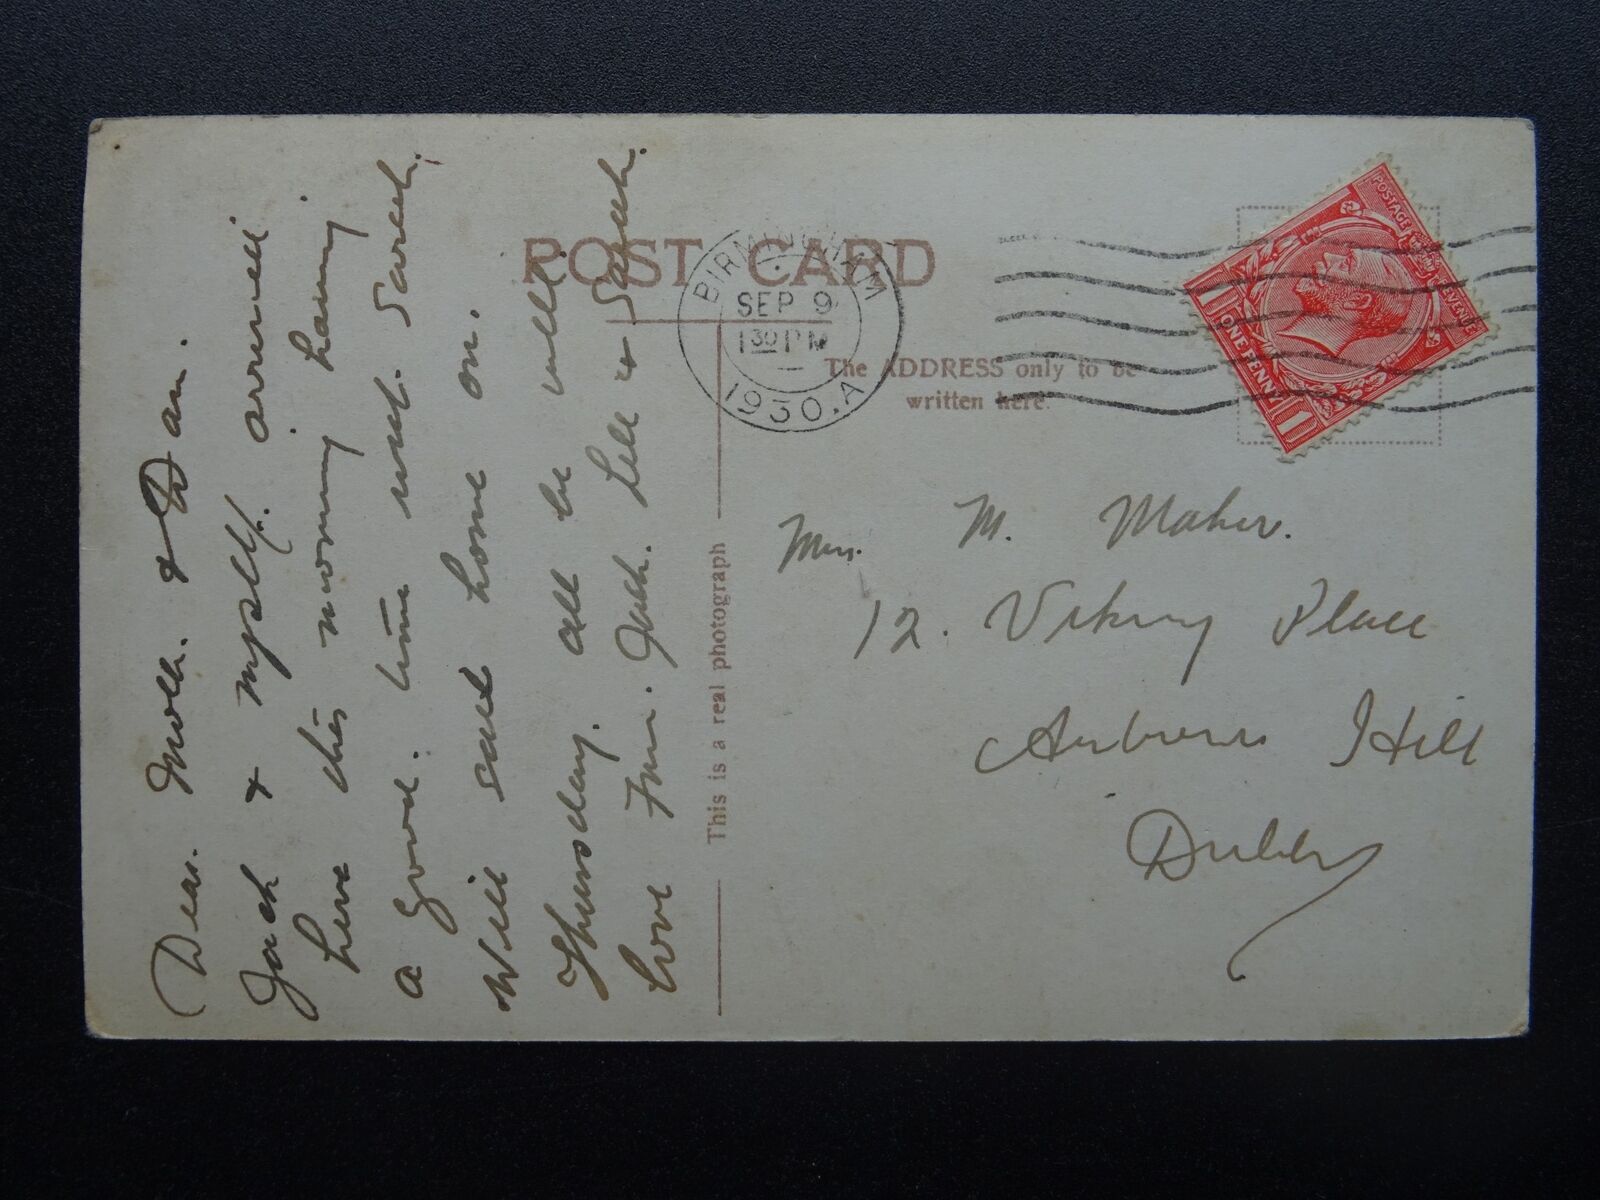 Dear. Moll. & Dan.
Jack & myself. arrived
here this morning having
a good. time with Sarah.
Will sail home on.
Thursday. all be well.
love from. Jack. Lill & Sarah.
POST CARD
This is a real photograph
The ADDRESS only to be
written here.
BIRMINGHAM
SEP 9
1 30 PM
1930. A
POSTAGE
REVENUE
ONE PENNY
1 1
Mrs. M. Maher.
12. Viking Place
Arbour Hill
Dublin